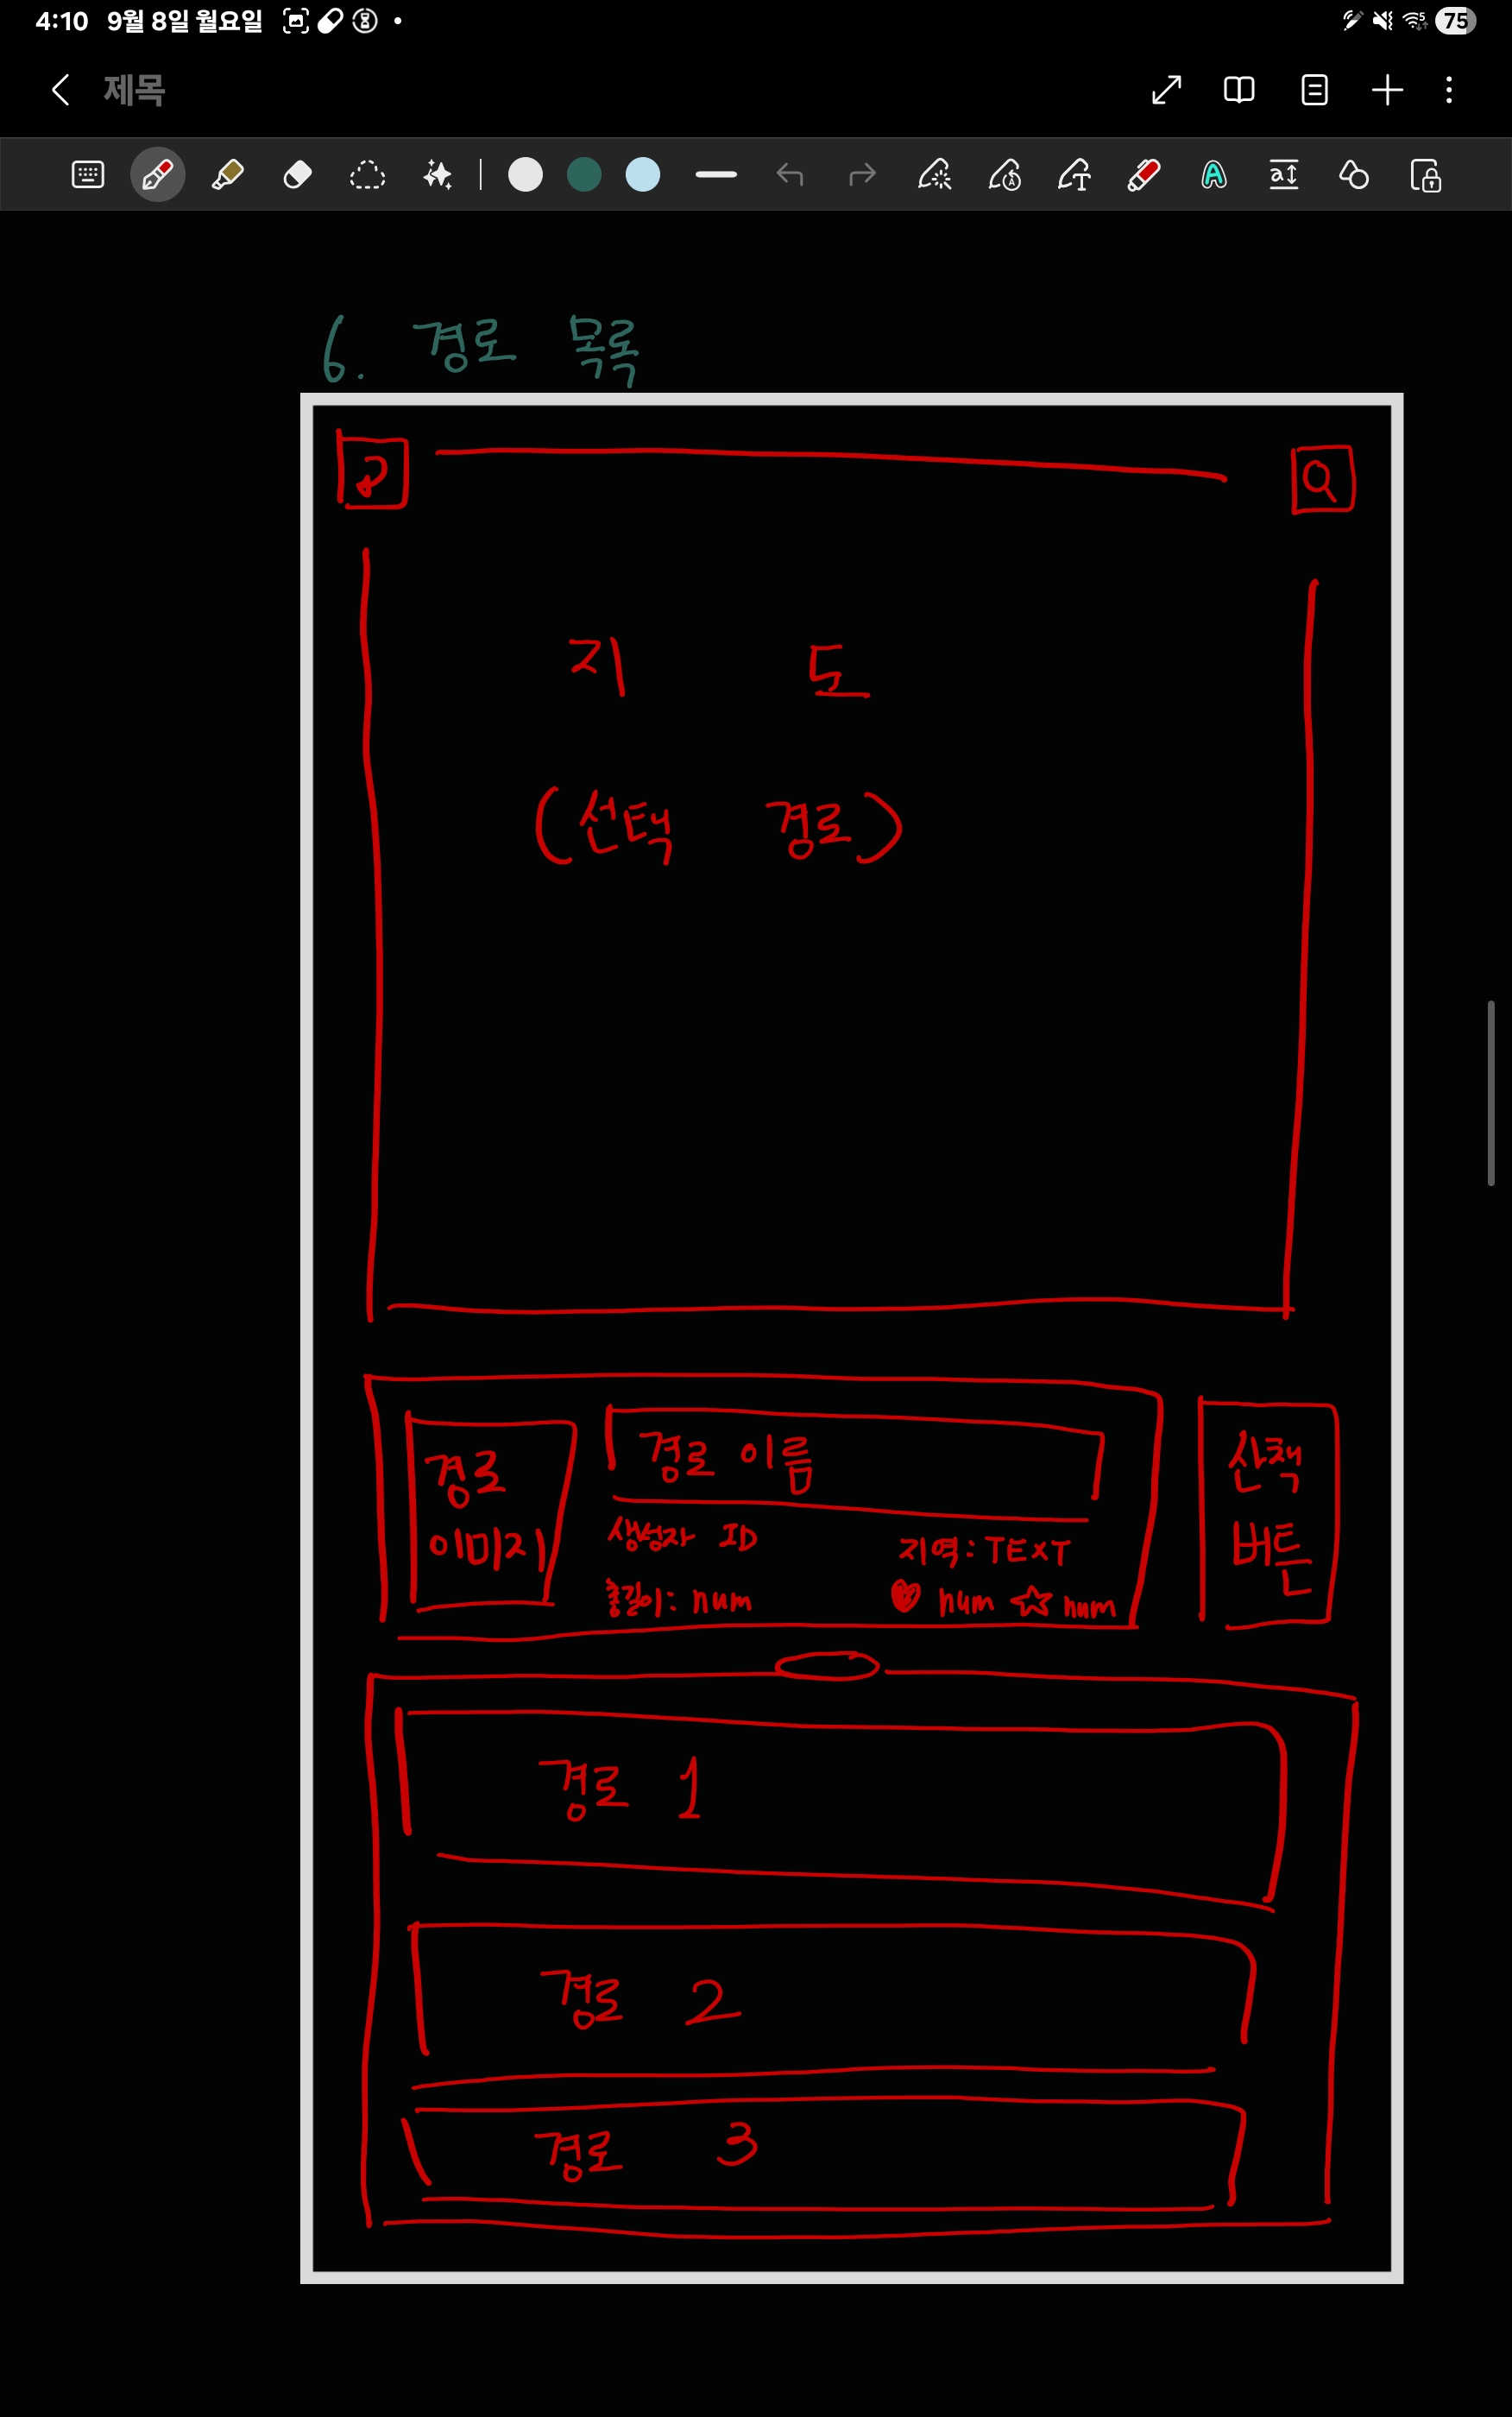 4:10 9월 8일 월요일
75
제목
6. 경로 목록
지 도
(선택 경로)
경로 이미지
경로 이름
생성자 ID
지역: TEXT
총길이: num
num num
산책 버튼
경로 1
경로 2
경로 3